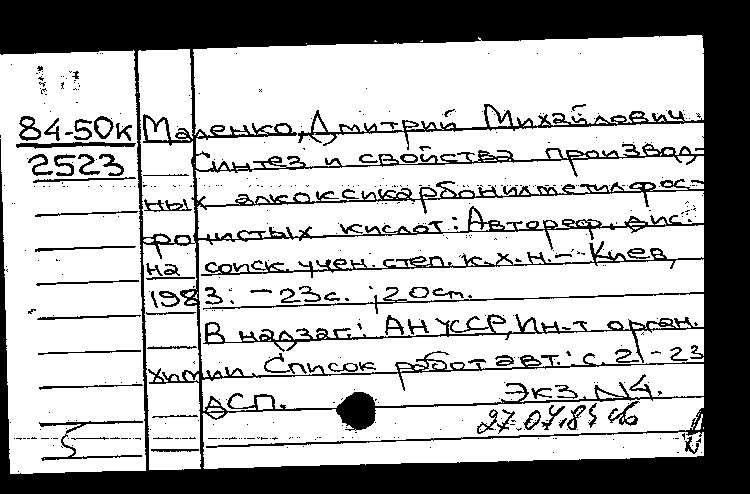 84-50к Маленко, Дмитрий Михайлович.
2523 Синтез и свойства производ-
ных алкоксикарбонилметилфос-
фонистых кислот: Автореф. дис.
на соиск. учен. степ. к.х.н. - Киев,
1983. - 23с. ; 20см.
В надзаг.: АН УССР, Ин-т орган.
химии. Список работ авт.: с. 21-23
ДСП. Экз. N4.
27.07.84